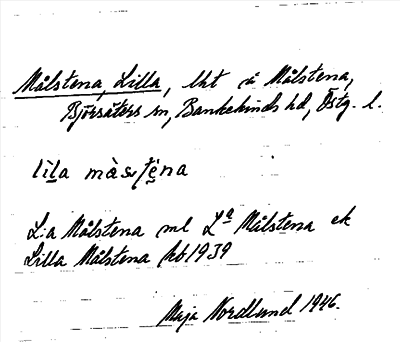 Målstena, Lilla, lht å Målstena,
Björsäters sn, Bankekinds hd, Östg. l.
lìla mà
L:a Målstena ml Lª Målstena ek
Lilla Målstena hb 1939
Maja Nordlund 1946.